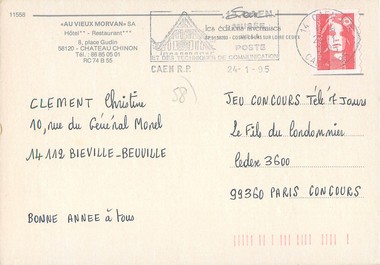 11558
«AU VIEUX MORVAN» SA
Hôtel** - Restaurant***
8, place Gudin
58120 - CHATEAU CHINON
Tél. : 86 85 05 01
RC 74 B 55
MUSÉE
POSTE
ET DES TECHNIQUES DE COMMUNICATION
CAEN R.P. 24-1-95
58
CLEMENT Christine
10, rue du Général Morel
14112 BIEVILLE-BEUVILLE
BONNE ANNEE à tous
JEU CONCOURS Télé 7 Jours
Le Fils du Cordonnier
Cedex 3600
99360 PARIS CONCOURS